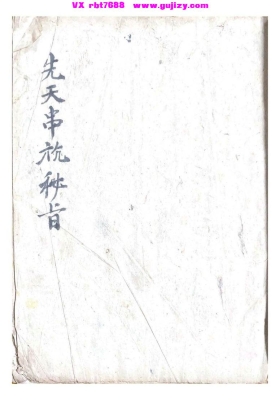 VX rbt7688 www.gujizy.com
先天串秘旨